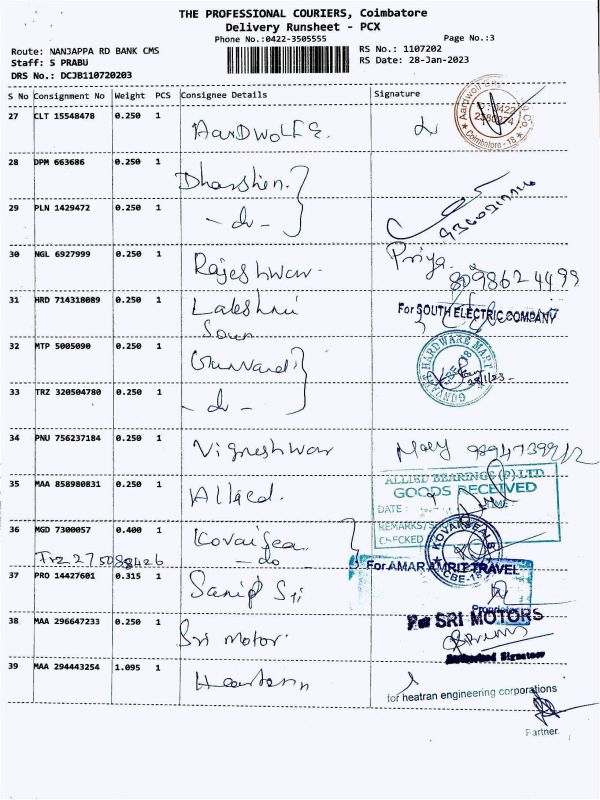 THE PROFESSIONAL COURIERS, Coimbatore
Delivery Runsheet - PCX
Phone No.:0422-3505555 Page No.:3
Route: NANJAPPA RD BANK CMS RS No.: 1107202
Staff: S PRABU RS Date: 28-Jan-2023
DRS No.: DCJB110720203
S No Consignment No Weight PCS Consignee Details Signature
27 CLT 15548478 0.250 1 AARDWOLFE.
Coimbatore - 18
28 DPM 663686 0.250 1 Dharshen.
29 PLN 1429472 0.250 1 - do -
30 NGL 6927999 0.250 1 Rajeshwar Priya
8098624499
31 HRD 714318089 0.250 1 Lakshmi For SOUTH ELECTRIC COMPANY
32 MTP 5005090 0.250 1 HARDWARE MART
33 TRZ 320504780 0.250 1 - do -
34 PNU 756237184 0.250 1 Vigneshwar
35 MAA 858980831 0.250 1 Allied. ALLIED BEARINGS (P) LTD
GOODS RECEIVED
DATE :
REMARKS/
CHECKED
36 MGD 7300057 0.400 1 Kovai Sea
Trz 275088426 - do For AMAR AMRIT TRAVEL
CBE-18
37 PRO 14427601 0.315 1
Proprietor
38 MAA 296647233 0.250 1 Sri motor For SRI MOTORS
Authorised Signatory
39 MAA 294443254 1.095 1
for heatran engineering corporations
Partner.